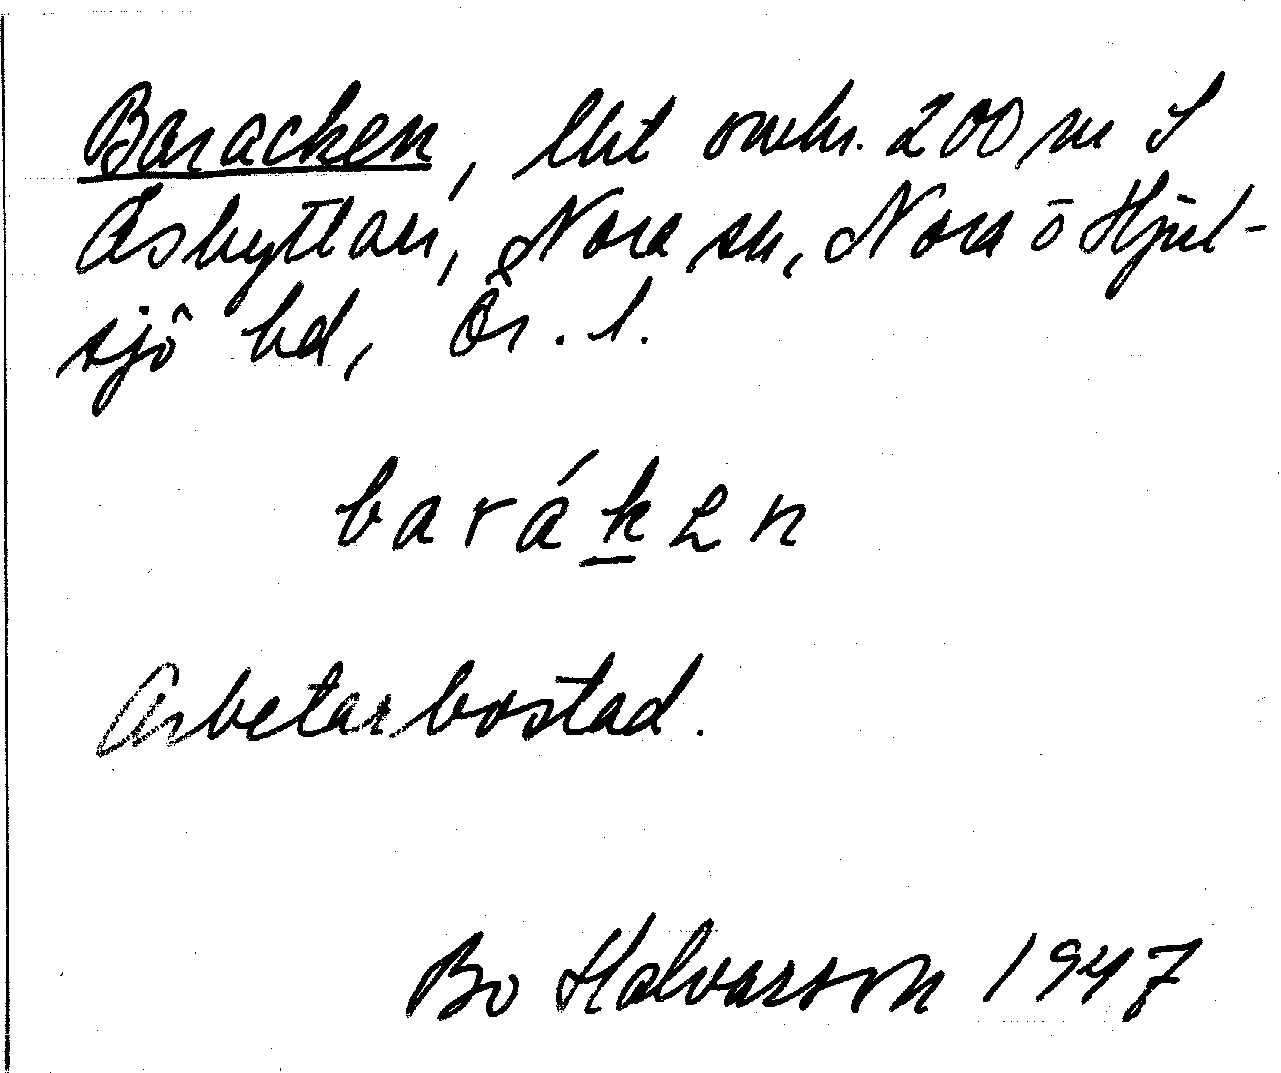 Baracken, lht omkr. 200 m S
Åsbyttan, Nora sn, Nora o Hjul-
sjö bd, Ör. l.
baráken
Arbetarbostad.
Bo Halvarson 1947